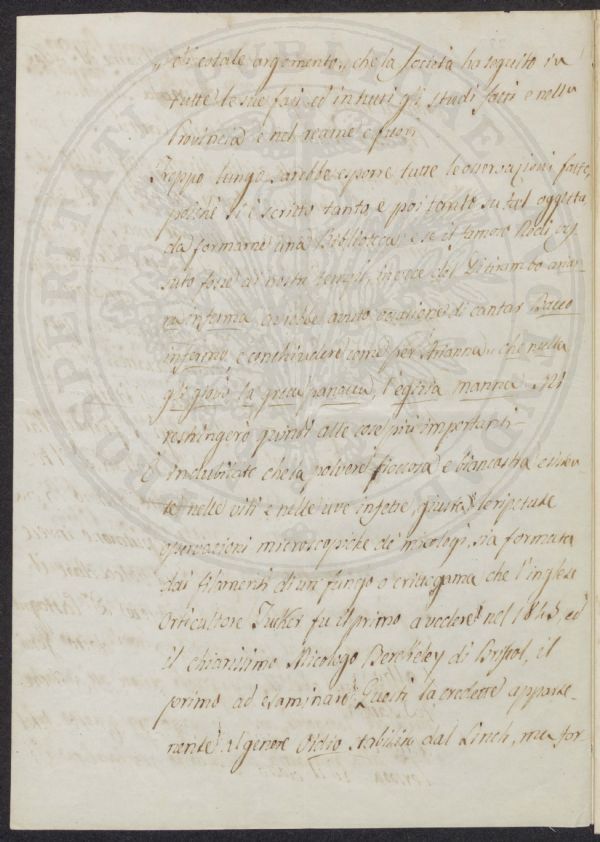 di cotale argomento, che la Società ha seguito in
tutte le sue fasi ed in tutti gli studi fatti e nella
Provincia e nel reame e fuori.
Troppo lungo sarebbe esporre tutte le osservazioni fatte,
poichè si è scritto tanto e poi tanto su tal oggetto
da formarne una Biblioteca; e se il famoso Redi, vis
suto fosse ai nostri tempi, invece del Ditirambo Arian
na inferma, avrebbe avuto occasione di cantar Bacco
infermo, e conchiudere come per Arianna, che nulla
gli giovò la greca panacea, l'egizia manna. Mi
restringerò quindi alle cose più importanti-
È indubitato che la polvere fioccosa e biancastra esisten
te nelle viti e nelle uve infette, giusta le ripetute
osservazioni microscopiche de' micologi, sia formata
dai filamenti di un fungo o crittogama che l'inglese
Orticultore Tucker fu il primo a vedere nel 1845 ed
il chiarissimo Micologo Berkeley di Bristol, il
primo ad esaminare. Questi la credette apparte-
nente al genere Oidio stabilito dal Linch, ma for-
PROSPERITATI PUBLICAE